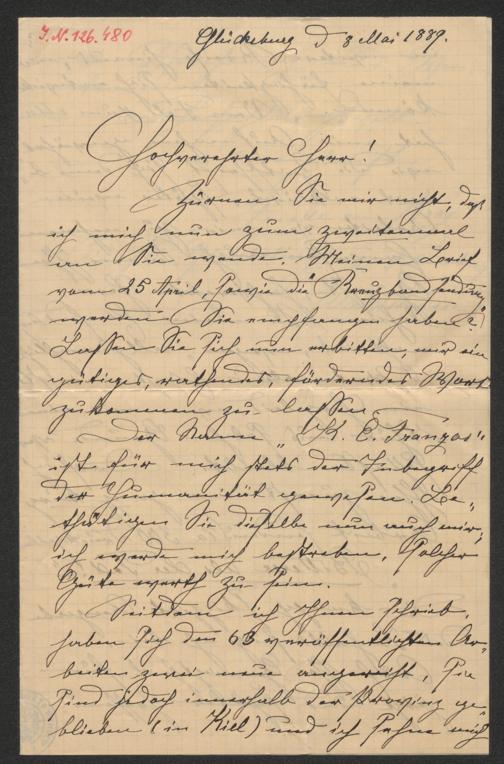 J.N. 126.480
Glücksburg d 8 Mai 1889.
Hochverehrter Herr!
Zürnen Sie mir nicht, daß
ich mich nun zum zweitenmal
an Sie wende. Meinen Brief
vom 25 April, sowie die Kreuzbandsendung
werden Sie empfangen haben?
Lassen Sie sich nun erbitten, mir ein
gütiges, rathendes, förderndes Wort
zukommen zu lassen.
Der Name „K. E. Franzos“
ist für mich stets der Inbegriff
der Humanität gewesen. Be-
thätigen Sie dieselbe nun auch mir,
ich werde mich bestreben, solcher
Güte werth zu sein.
Seitdem ich Ihnen schrieb,
haben sich den 63 veröffentlichten Ar-
beiten zwei neue angereiht, sie
sind jedoch innerhalb der Provinz ge-
blieben (in Kiel) und ich sehne mich